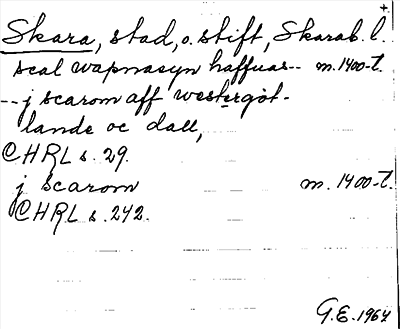 +
Skara, stad, o. stift, Skarab. l.
scal wapnasyn haffuas-- m. 1400-t.
-- j scarom aff westergöt-
lande oc dall,
CHRL s. 29.
j scarom m. 1400-t.
CHRL s. 242.
G.E. 1964